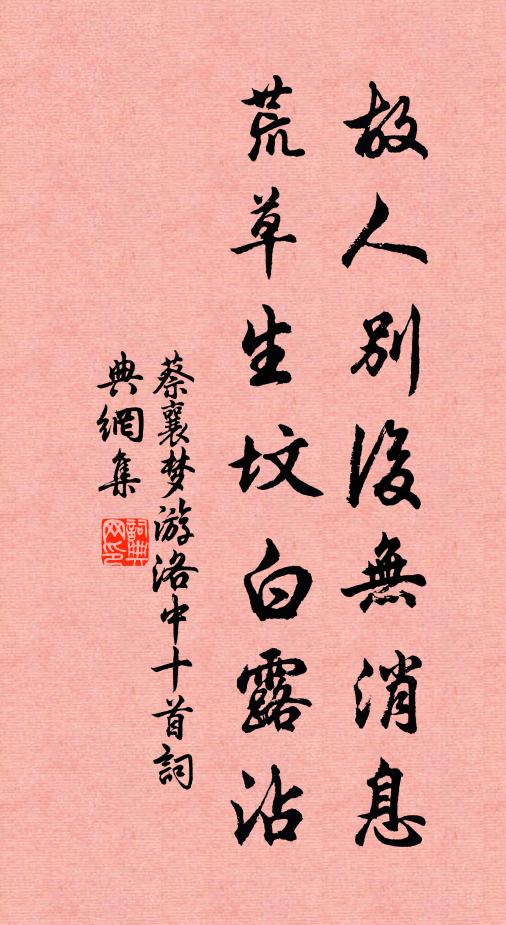 故人別後無消息
荒草生坟白露沾
蔡襄梦游洛中十首詞
典網集
詞典網印